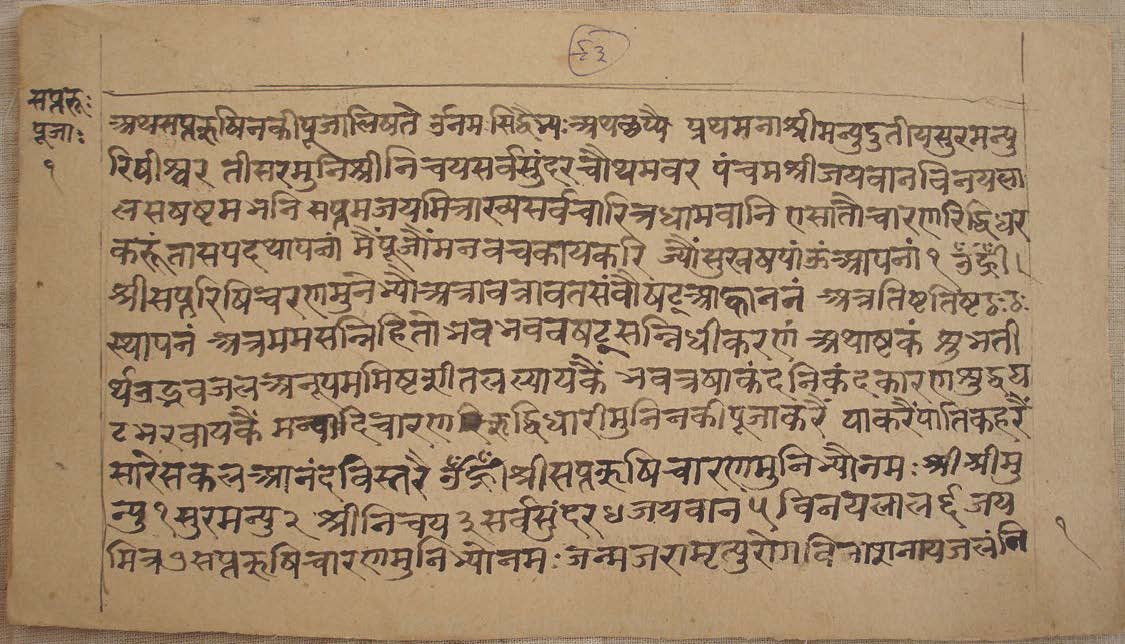 ६३
सप्तऋ:
पूजा:
१
अथसप्तऋषिनकीपूजालिष्यते ॐनम:सिद्धैभ्य:अथछप्पै प्रथमनाश्रीमन्युदुतीयसुरमन्यु
रिषीश्वर तीसरमुनिश्रीनिचयसर्वसुंदरचौथमवर पंचमश्रीजयवानविनयला
लसषष्टमभनि सप्तमजयमित्राख्यसर्वचारित्रधामवानि एसातौचारणरिद्धिधर
करूंतासपदथापनां मैंपूजौंमनवचकायकरि ज्यौंसुखषपांऊंआपनां १ ॐह्रीं।
श्रीसप्तरिषिश्चरणमुनैभ्यौअत्रावत्रावतसंवौषट्आह्वाननं अत्रतिष्टतिष्टठ:ठ:
स्थापनं अत्रममसन्निहितोभवभववषट्सन्निधीकरणं अथाष्टकं शुभती
र्थउद्भवजलअनूपममिष्टशीतलल्यायकैं भवत्रषाकंदनिकंदकारणशुद्धघ
टभरवायकैं मन्वादिचारणऋद्धिधारीमुनिनकीपूजाकरैं याकरैंपातिकहरैं
सारेसकलआनंदविस्तरै ॐह्रींश्रीसप्तऋषिचारणमुनिभ्यौनम: श्रीश्रीमु
न्यु १ सुरमन्यु २ श्रीनिचय ३ सर्वसुंदर ४ जयवान ५ विनयलाल ६ जय
मित्र ७ सप्तऋषिचारणमुनिभ्योनम: जन्मजरामृत्युरोगविनाशनायजलंनि
१